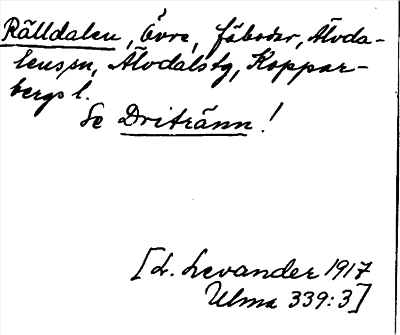 Rälldalen, Övre, fäbodar, Älvda-
lens sn, Älvdals tg, Koppar-
bergs l.
Se Dritränn!
[L. Levander 1917
Ulma 339:3]